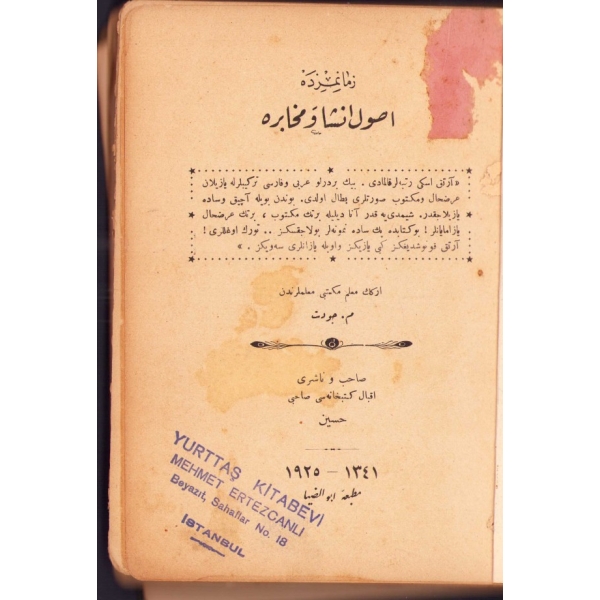 زمانمزده
اصول انشا و مخابره
« آرتق اسكی رتبه‌لر قالمادی . بیك بر درلو عربی و فارسی تركیبلرله یازیلان
عرضحال و مكتوب صورتلری بطال اولدی . بوندن بویله آچیق و ساده
یازیلاجقدر. شیمدی‌یه قدر آنا دیلیله برتك مكتوب ، برتك عرضحال
یازامایانلر ! بو كتابده پك ساده نمونه‌لر بولاجقسكز . . تورك اوغللری !
آرتق قونوشدیغكز كبی یازیكز و اویله یازانلری سه‌ویكز . »
اركك معلم مكتبی معلملرندن
م . جودت
صاحب و ناشری
اقبال كتبخانه‌سی صاحبی
حسین
١٣٤١ — ١٩٢٥
مطبعهٔ ابوالضیا
YURTTAŞ KİTABEVİ
MEHMET ERTEZCANLI
Beyazıt, Sahaflar No. 18
İSTANBUL